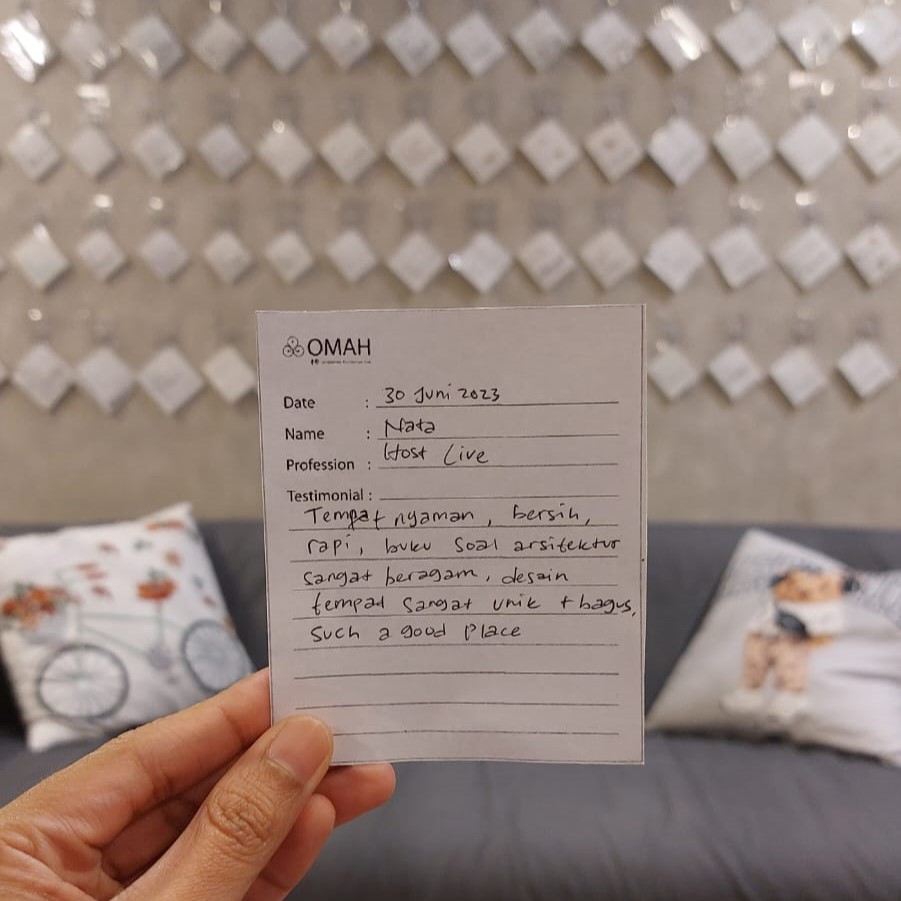 OMAH
Date : 30 Juni 2023
Name : Nata
Profession : Host Live
Testimonial :
Tempat nyaman, bersih,
rapi, buku soal arsitektur
sangat beragam, desain
tempat sangat unik + bagus,
such a good place